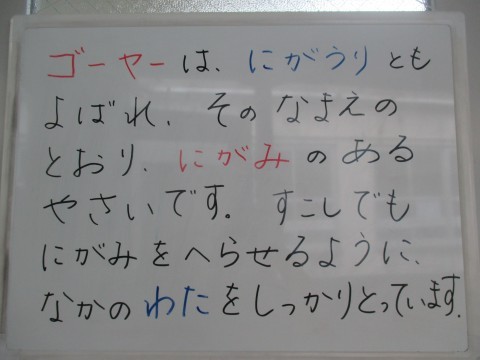 ゴーヤーは、にがうりとも
よばれ、そのなまえの
とおり、にがみのある
やさいです。すこしでも
にがみをへらせるように、
なかのわたをしっかりとっています。